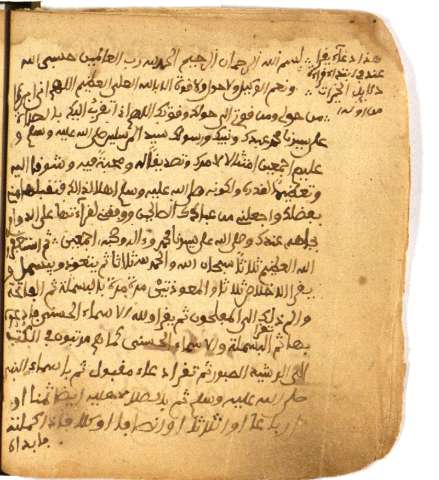 هذا دعاء يقرا
عند ابتداء قراءة
دلايل الخيرات
من اوله
بسم الله الرحمان الرحيم الحمد لله رب العالمين حسبي الله
ونعم الوكيل ولا حول ولا قوة الا بالله العلي العظيم اللهم اني ابرا
من حولي ومن قوتي الى حولك وقوتك اللهم اني اتقرب اليك بالصلاة
على سيدنا محمد عبدك ونبيك ورسولك سيد المرسلين صلى الله عليه وسلم و
عليهم اجمعين امتثالا لامرك وتصديقا له ومحبة فيه وشوقا اليه
وتعظيما لقدره ولكونه صلى الله عليه وسلم اهلا لذلك فتقبلها مني
بفضلك واجعلني من عبادك الصالحين ووفقني لقراءتها على الدوام
بجاهه عندك وصلى الله على سيدنا محمد وءاله وصحبه اجمعين ثم استغفر
الله العظيم ثلاثا سبحان الله والحمد لله ثلاثا ثم يتعوذ ويبسمل و
يقرا الاخلاص ثلاثا والمعوذتين مرة مرة بالبسملة ثم الفاتحة
والم ذلك الى المفلحون ثم يقرا ولله الاسماء الحسنى فادعوه
بها ثم يقرا البسملة والاسماء الحسنى كما هي مرتبة في الكتب
الى الرشيد الصبور ثم تقرا دعاء مقبول ثم باسماء النبي
صلى الله عليه وسلم ثم بالصلاة عليه ايضا ثمنا او
ارباعا او اثلاثا او انصافا او كلا فاذا كملته
فابداه